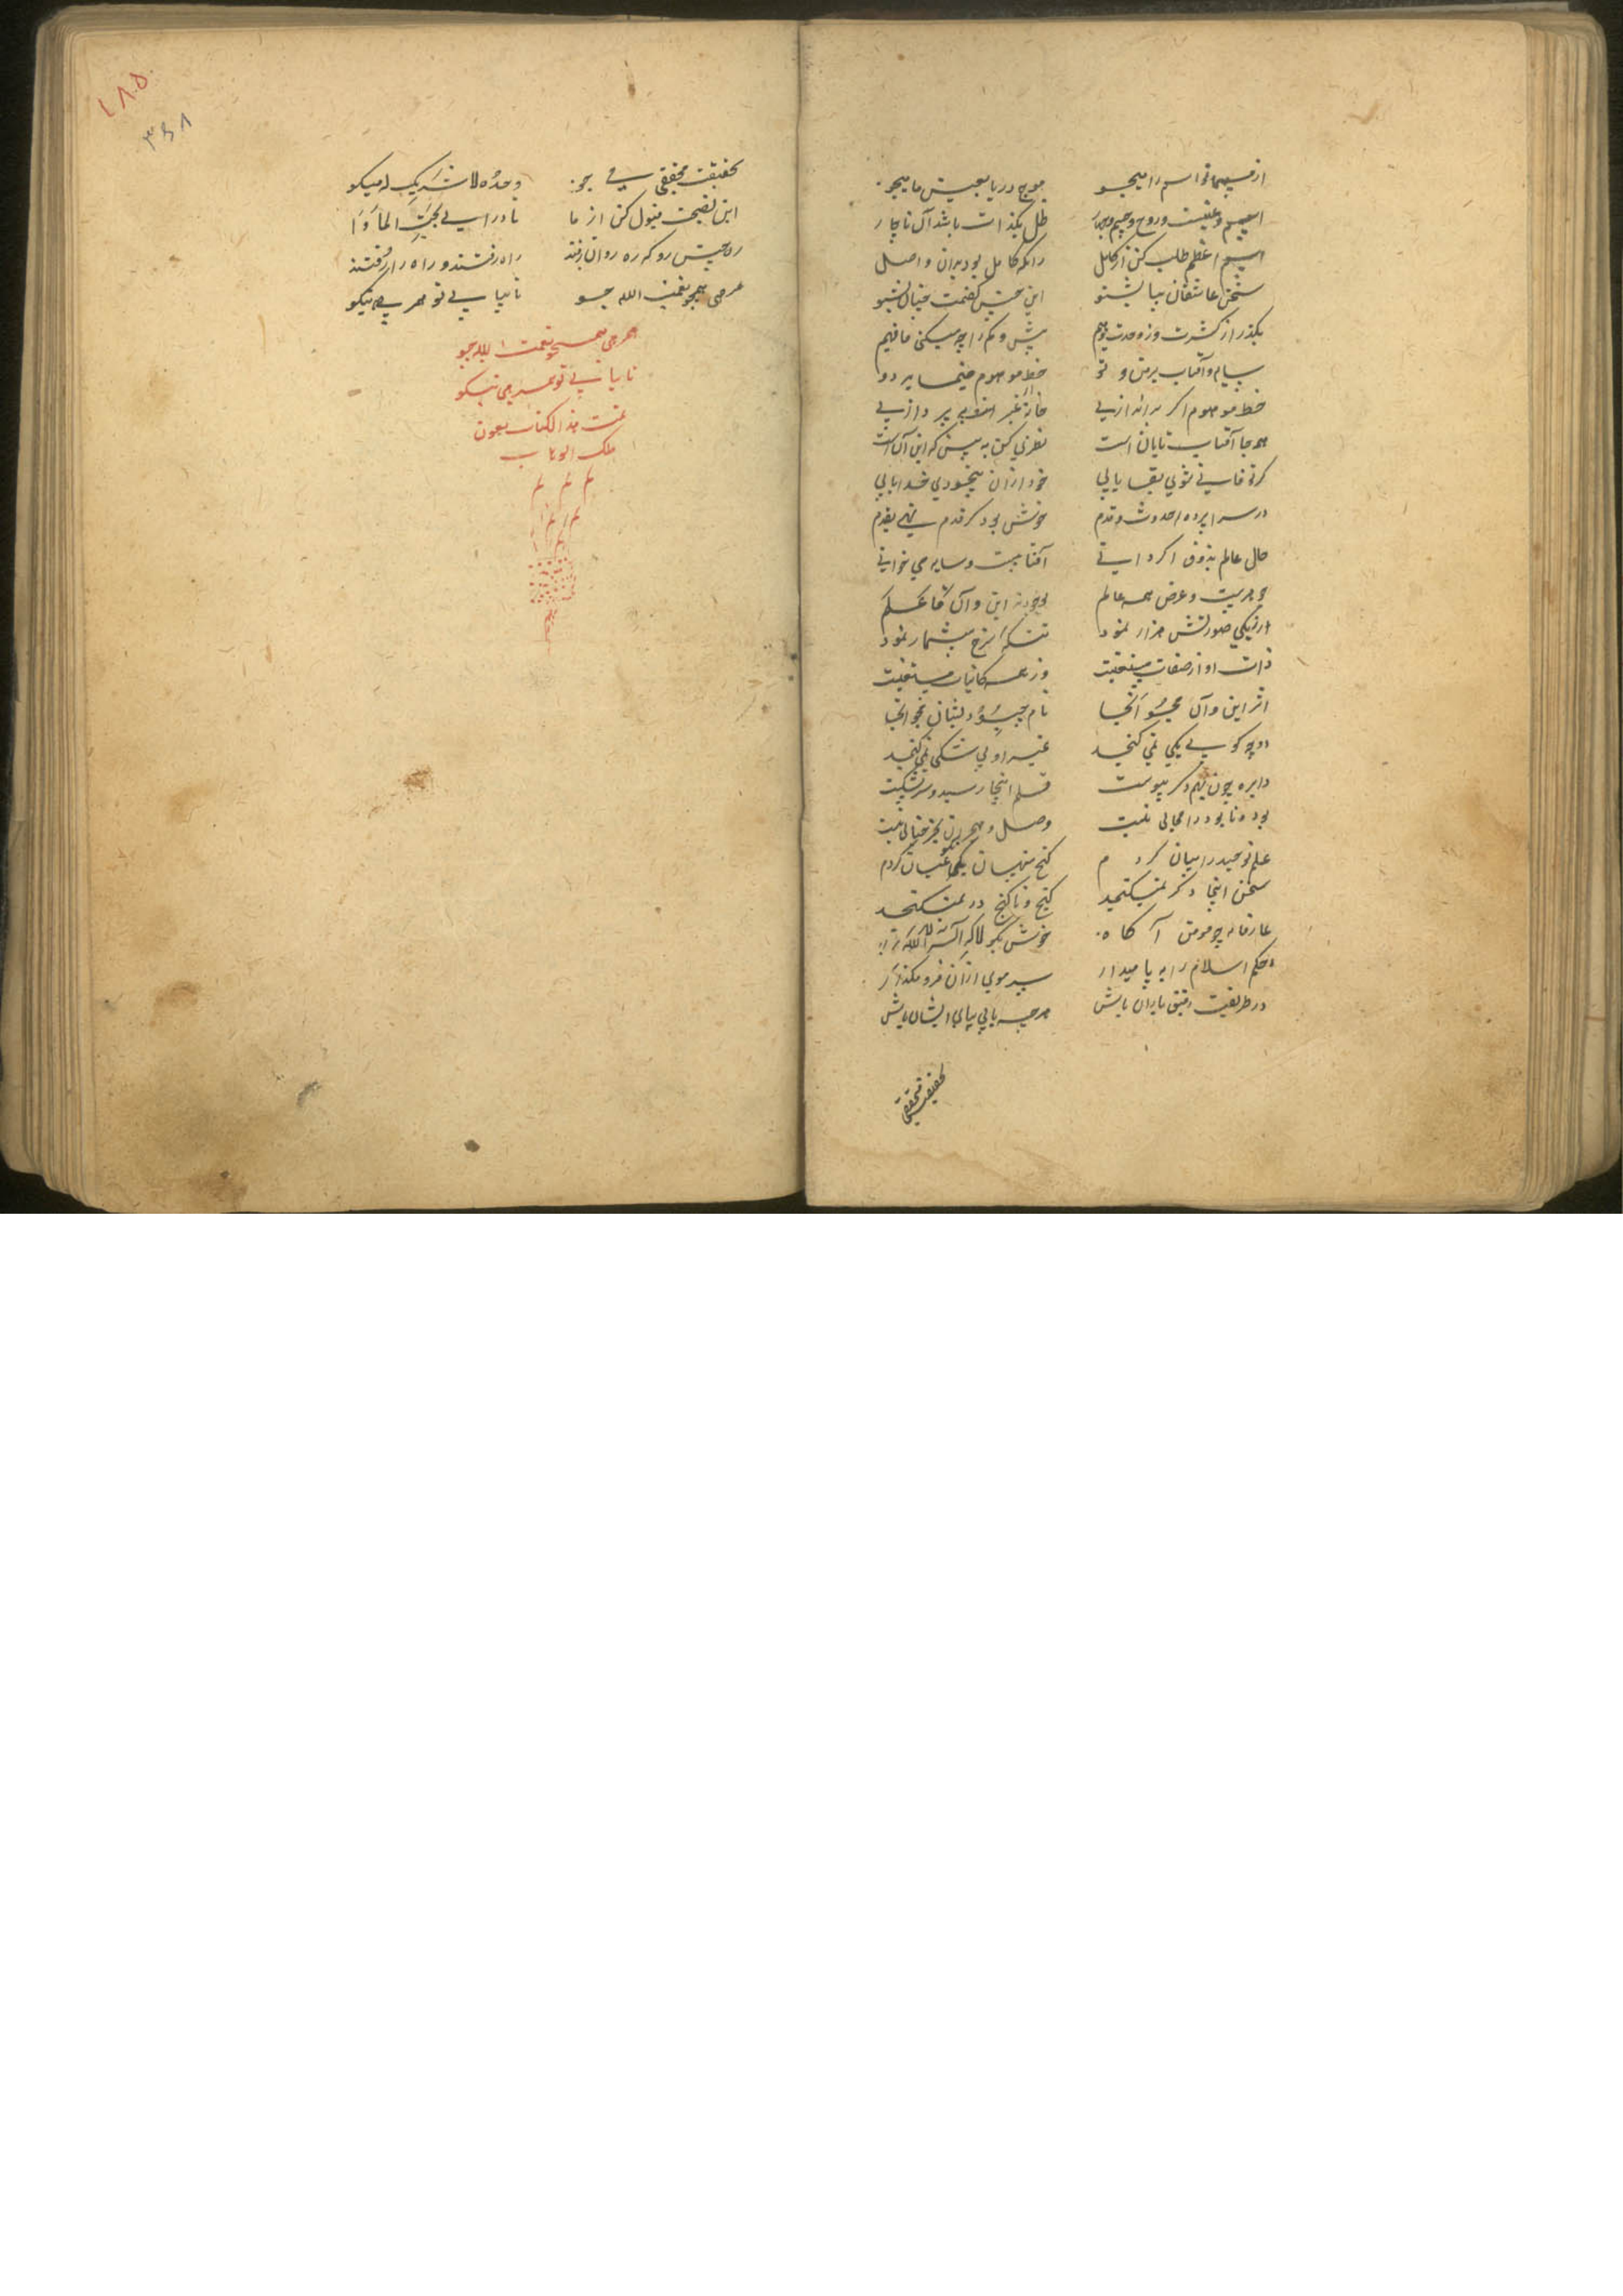 از مسما تو اسم را میجو موج دریا بعیش ما میجو
اسم و عینست و روح و جسم و چهار ظل یکذات باشد آن ناچار
اسم اعظم طلب کن از کامل زانکه کامل بود بدان واصل
سخن عاشقان بیا بشنو این چنین گفتمت چنان بشنو
بگذر از کثرت و ز وحدت هم بیش و کم را چه میکنی فافهم
سایه و آفتاب برمن و تو خط موهوم مینماید دو
خط موهوم اگر براندازیی خانه از غیر او بپردازیی
همه جا آفتاب تابان است نظری کن به بین که این آن است
گر تو فانی شوی بقا یابی خود از آن بیخودی خدا یابی
در سرا پرده حدوث و قدم خوش بود گر قدم نهی بقدم
حال عالم بذوق اگر دانی آفتابیست و سایه می خوانی
جوهریست و عرض همه عالم بوجودند این و آن فاعلم
از یکی صورتش هزار نمود
ذات او از صفات مستغنیست وز همه کاینات مستغنیست
اثر این و آن مجو آنجا نام چبود نشان مجو آنجا
دو چه گویی یکی نمی گنجد غیر او بی شکی نمی گنجد
دایره چون بهم دگر پیوست قلم اینجا رسید و سر بشکست
بود و نابود را مجالی نیست وصل و هجران بجز خیالی نیست
علم توحید را بیان کردم گنج پنهان همه عیان کردم
سخن اینجا دگر نمیگنجد گنج و ناگنج در نمیگنجد
عارفانه چو مومن آگاه خوش بگو لا اله الا الله
حکم اسلام را بپا میدار سر موی از آن فرو مگذار
در طریقت رفیق یاران باش هرچه یابی بپای ایشان پاش
بحقیقت محققی
بحقیقت محققی می جو وحده لا شریک له میگو
این نصیحت قبول کن از ما تا درآیی بجنت المأوا
ره چنین رو که ره روان رفتند راه رفتند و راه را رفتند
همرهی همچو نعمت الله جو تا بیابی تو همرهی نیکو
همرهی همچو نعمت الله جو
تا بیابی تو همرهی نیکو
تمت هذا الکتاب بعون
ملک الوهاب
م م م
م م م
م م